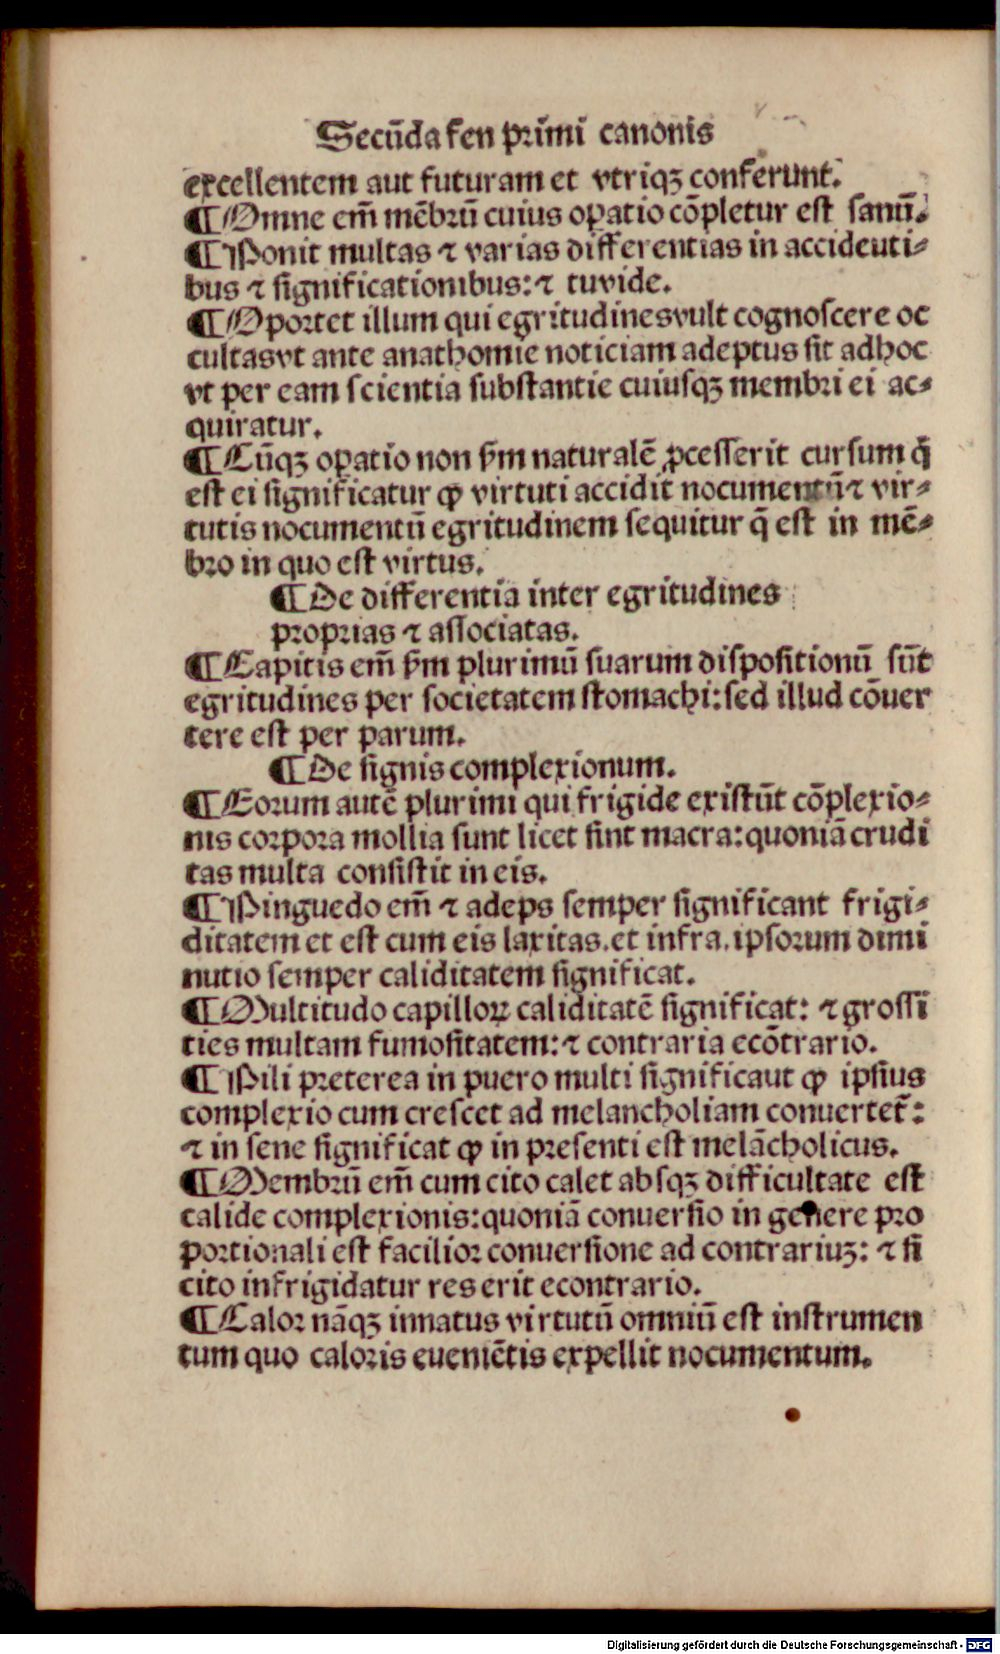 Secūda fen primi canonis
excellentem aut futuram et vtriqꝫ conferunt.
¶ Omne em̄ mēbrū cuius oꝑatio cōpletur est sanū.
¶ Ponit multas ⁊ varias differentias in accideuti⸗
bus ⁊ significationibus: ⁊ tu vide.
¶ Oportet illum qui egritudines vult cognoscere oc
cultas vt ante anathomie noticiam adeptus sit ad hoc
vt per eam scientia substantie cuiusqꝫ membri ei ac⸗
quiratur.
¶ Cūqꝫ oꝑatio non ẜm naturalē ꝓcesserit cursum q̄
est ei significatur ꝙ virtuti accidit nocumentū ⁊ vir⸗
tutis nocumentū egritudinem sequitur q̄ est in mē⸗
bro in quo est virtus.
¶ De differentia inter egritudines
proprias ⁊ associatas.
¶ Capitis em̄ ẜm plurimū suarum dispositionū sūt
egritudines per societatem stomachi: sed illud cōuer
tere est per parum.
¶ De signis complexionum.
¶ Eorum autē plurimi qui frigide existūt cōplexio⸗
nis corpora mollia sunt licet sint macra: quoniā crudi
tas multa consistit in eis.
¶ Pinguedo em̄ ⁊ adeps semper significant frigi⸗
ditatem et est cum eis laxitas. et infra. ipsorum dimi
nutio semper caliditatem significat.
¶ Multitudo capilloꝝ caliditatē significat: ⁊ grossi
ties multam fumositatem: ⁊ contraria ecōtrario.
¶ Pili preterea in puero multi significaut ꝙ ipsius
complexio cum crescet ad melancholiam conuertet̄:
⁊ in sene significat ꝙ in presenti est melācholicus.
¶ Membrū em̄ cum cito calet absqꝫ difficultate est
calide complexionis: quoniā conuersio in genere pro
portionali est facilior conuersione ad contrariuꝫ: ⁊ si
cito infrigidatur res erit econtrario.
¶ Calor nāqꝫ innatus virtutū omniū est instrumen
tum quo caloris eueniētis expellit nocumentum.
Digitalisierung gefördert durch die Deutsche Forschungsgemeinschaft - DFG